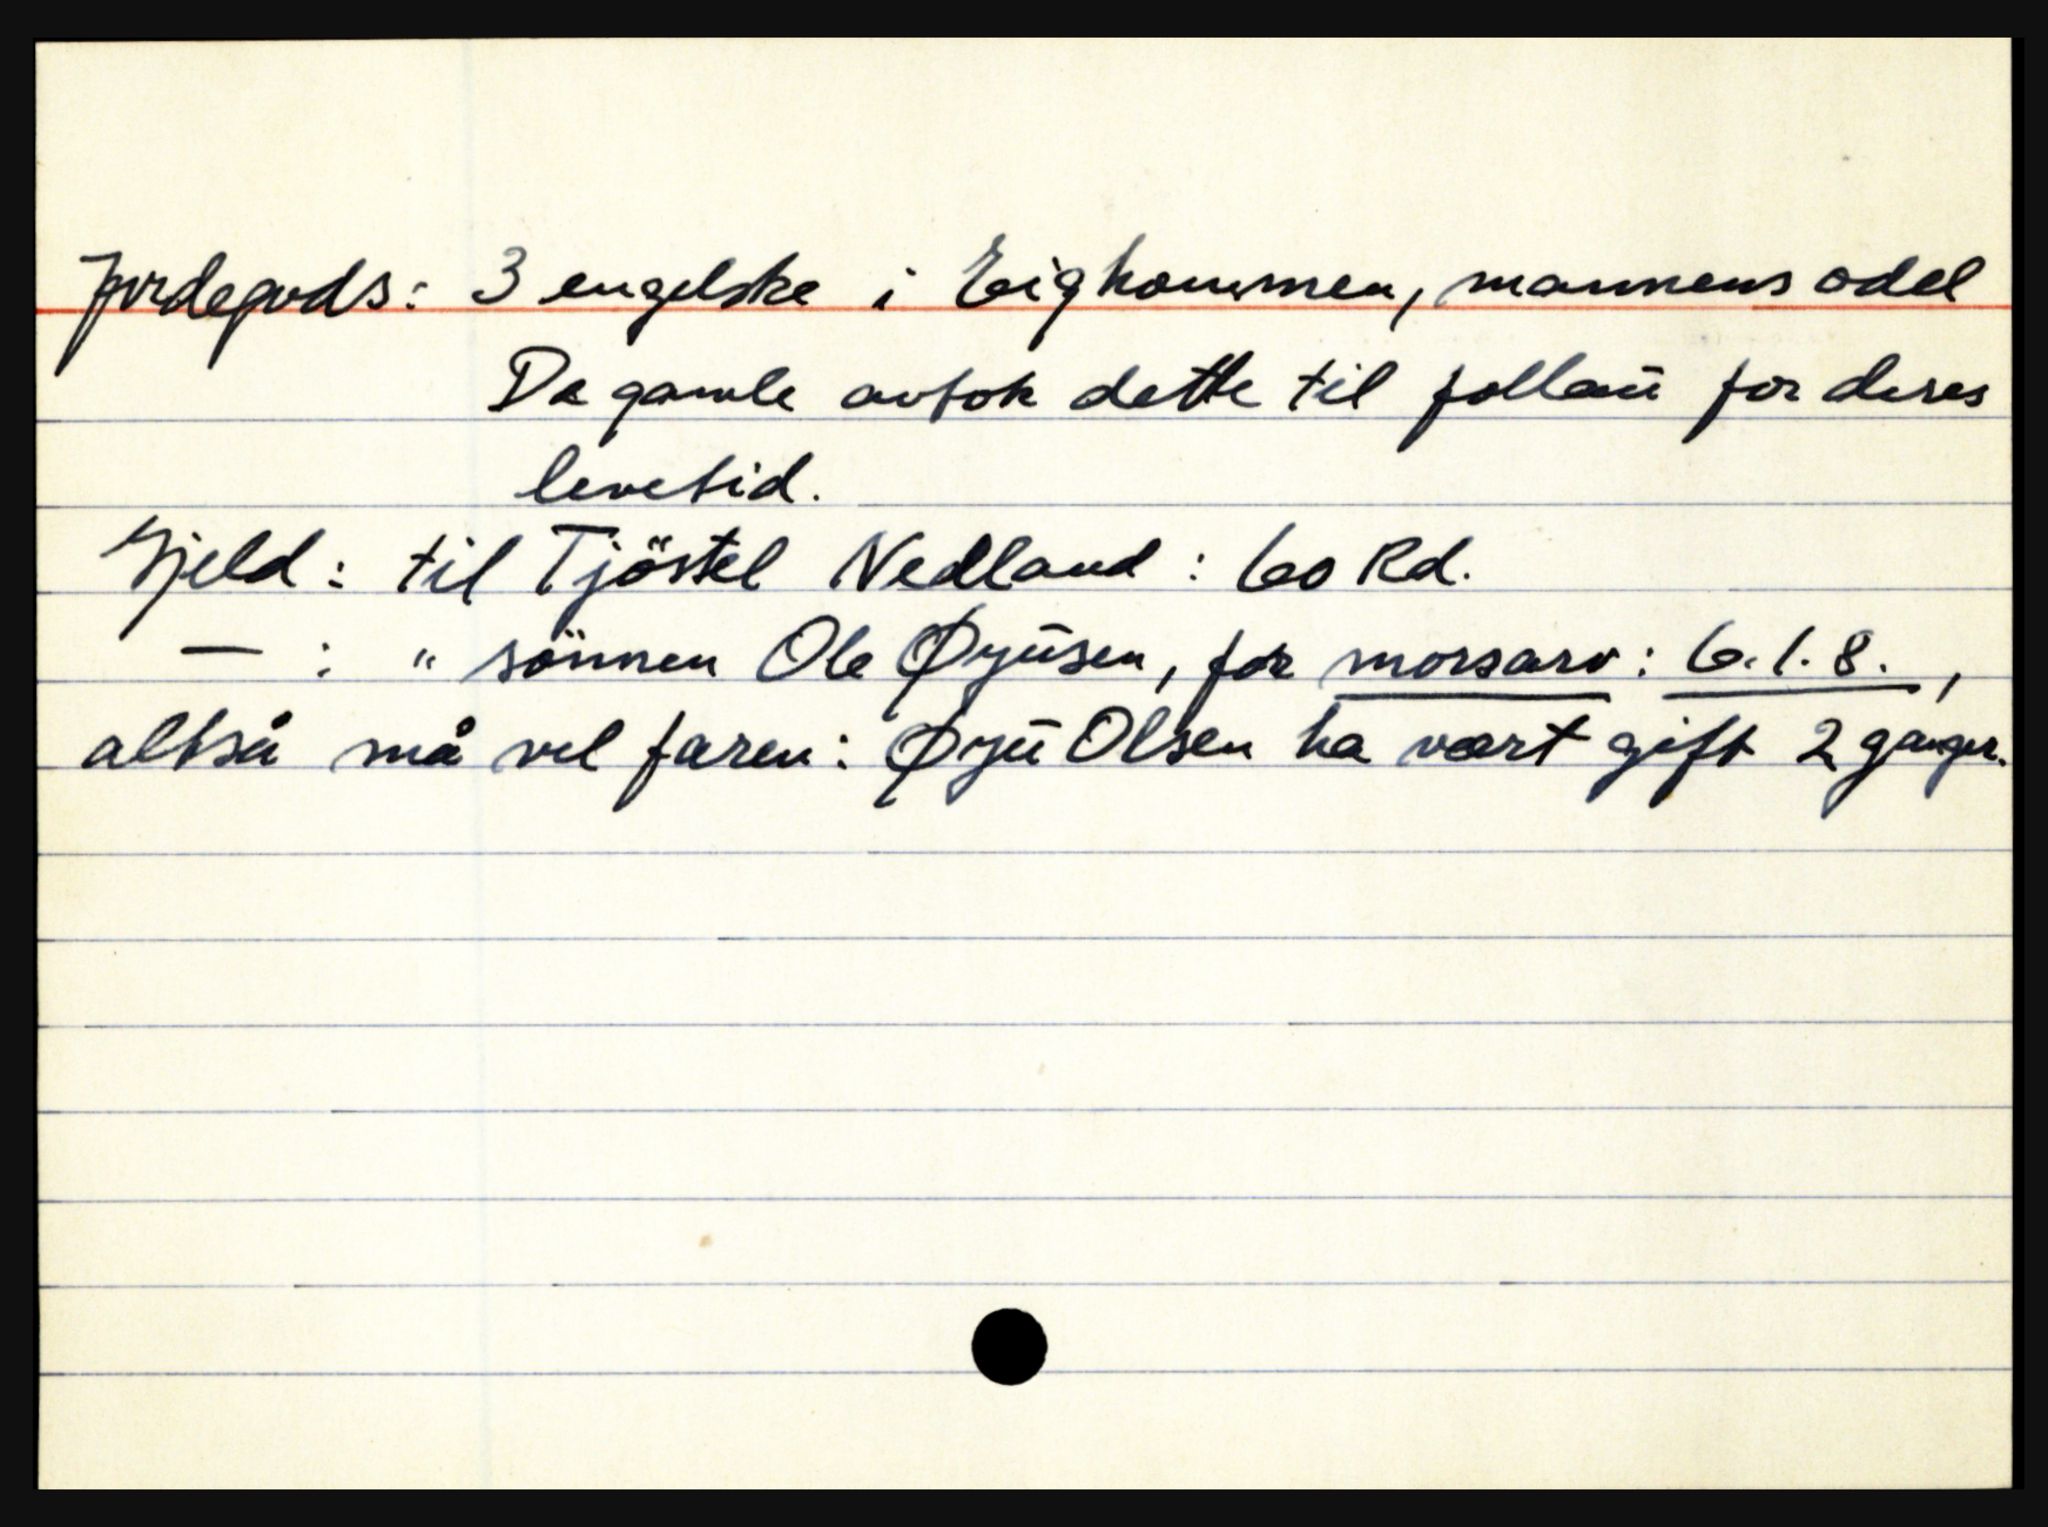 Jordegods: 3 engelske i Eighommen, mannens odel
De gamle avtok dette til follaů for deres
levetid.
Gjeld: til Tjöstel Nedland: 60 Rd.
— : " sönnen Ole Øyŭsen, for morsarv: 6.1.8. ,
altså må vel faren: Øyŭ Olsen ha vært gift 2 ganger.